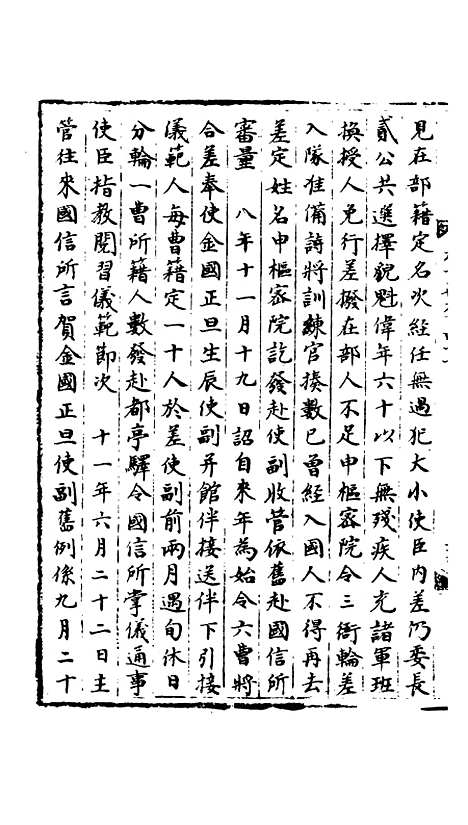 見在部籍定名次經任無過犯大小使臣內差仍委長
貳公共選擇貌魁偉年六十以下無殘疾人充諸軍班
換授人免行差撥在部人不足申樞密院令三衙輪差
入隊准備請將訓練官揍數已曾經入國人不得再去
差定姓名申樞密院訖發赴使副收管依舊赴國信所
審量　八年十一月十九日詔自來年為始令六曹將
合差奉使金國正旦生辰使副并館伴接送伴下引接
儀範人每曹籍定一十人於差使副前兩月遇旬休日
分輪一曹所籍人數發赴都亭驛令國信所掌儀通事
使臣指教閱習儀範節次　十一年六月二十二日主
管往來國信所言賀金國正旦使副舊例係九月二十